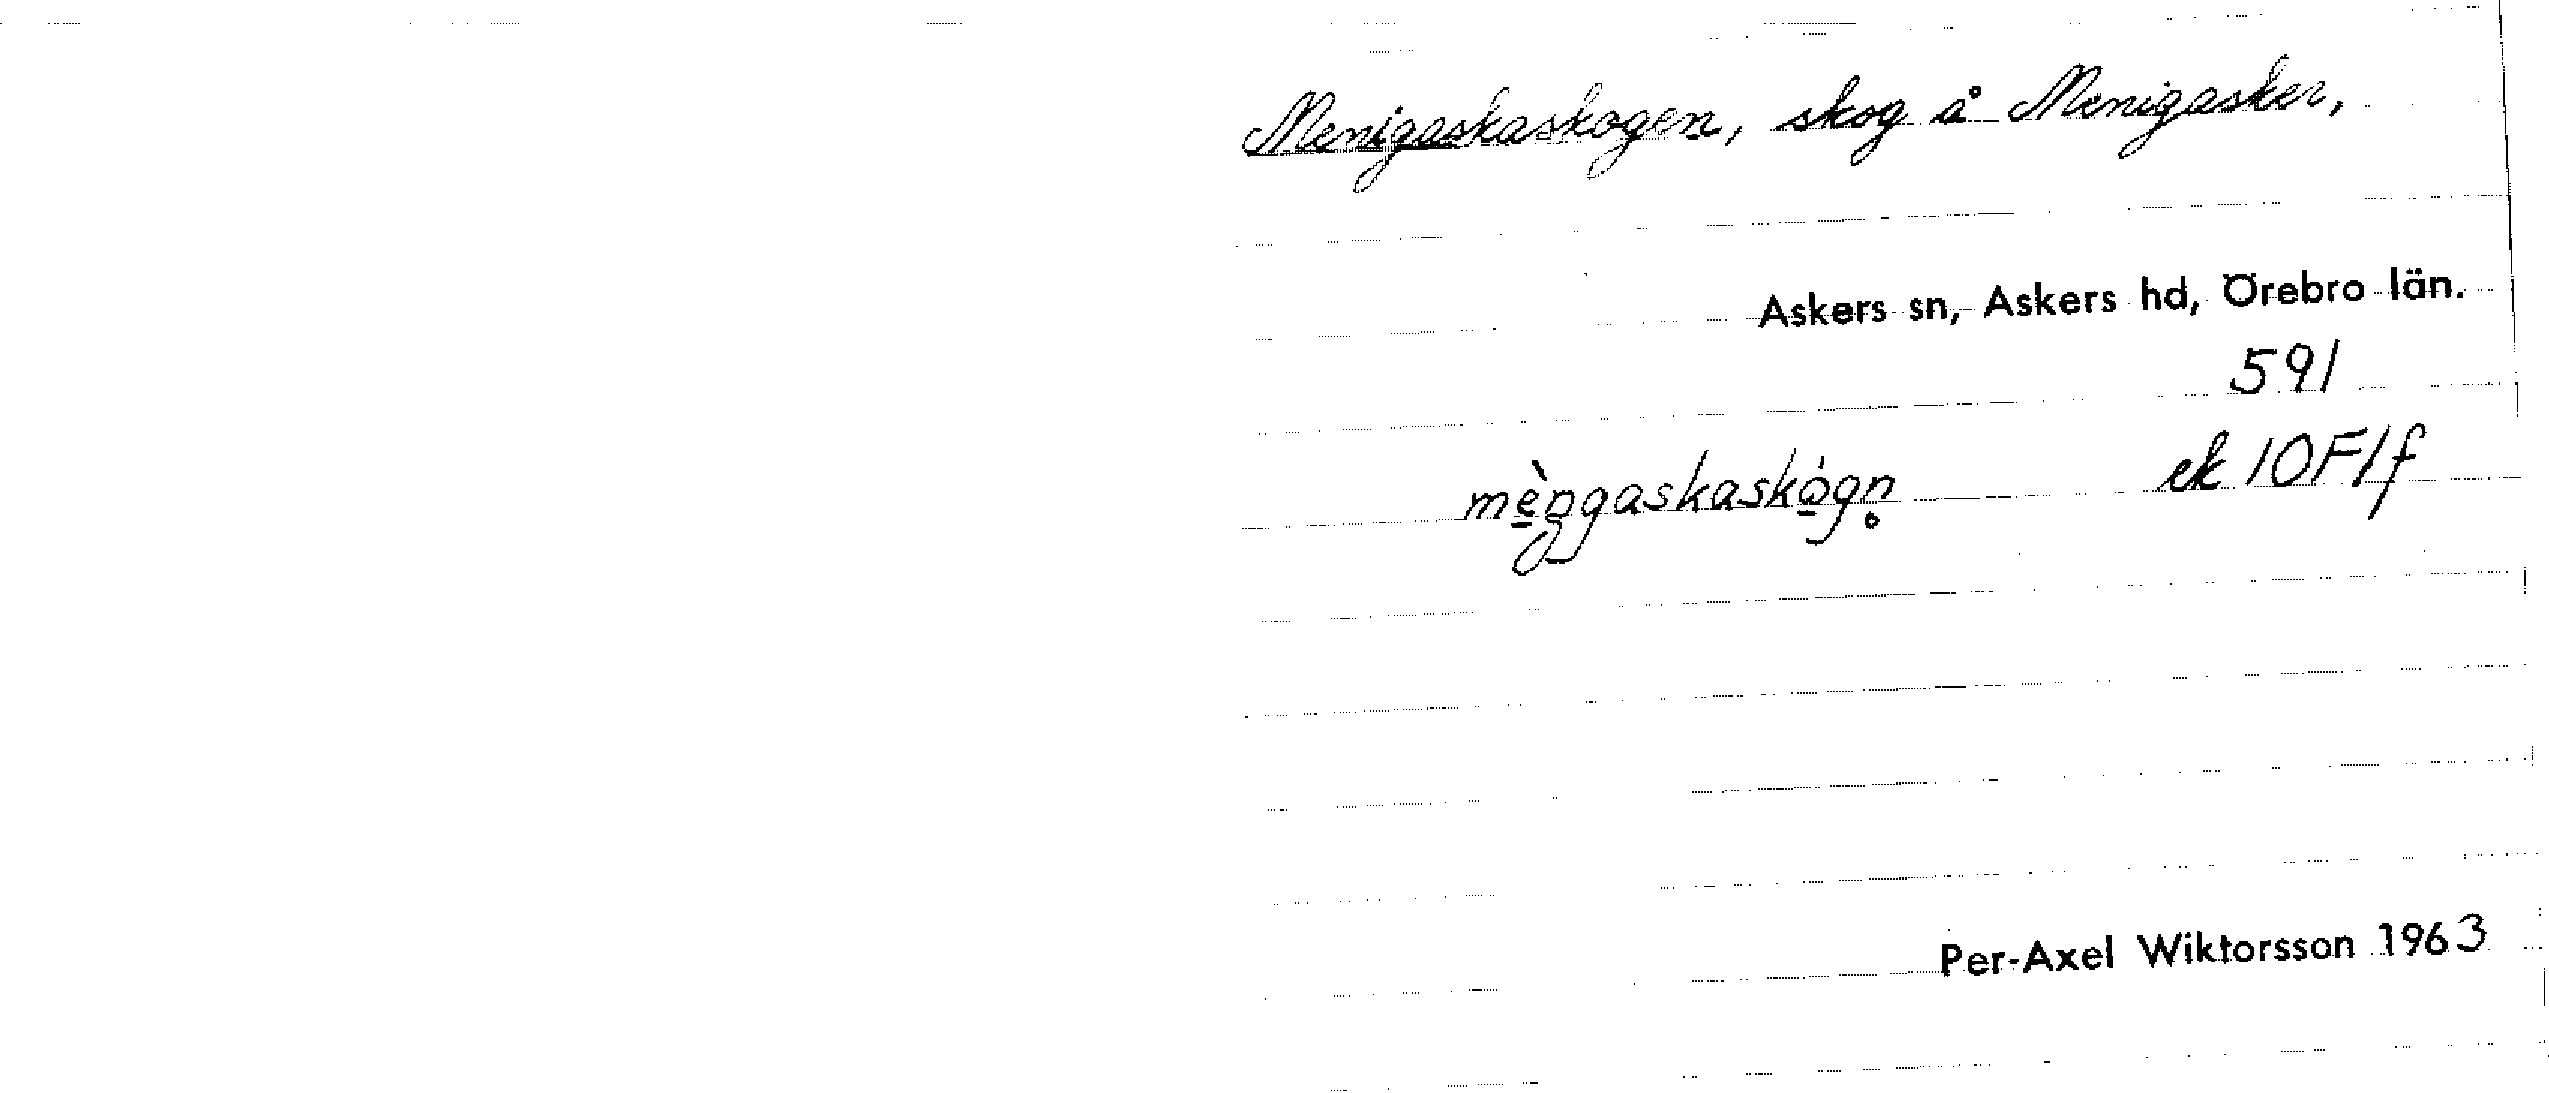 Menigaskaskogen, skog å Menigasker,
Askers sn, Askers hd, Örebro län.
591
mè̱ŋgaskaskó̱gn̥ ek 10F1f
Per-Axel Wiktorsson 1963